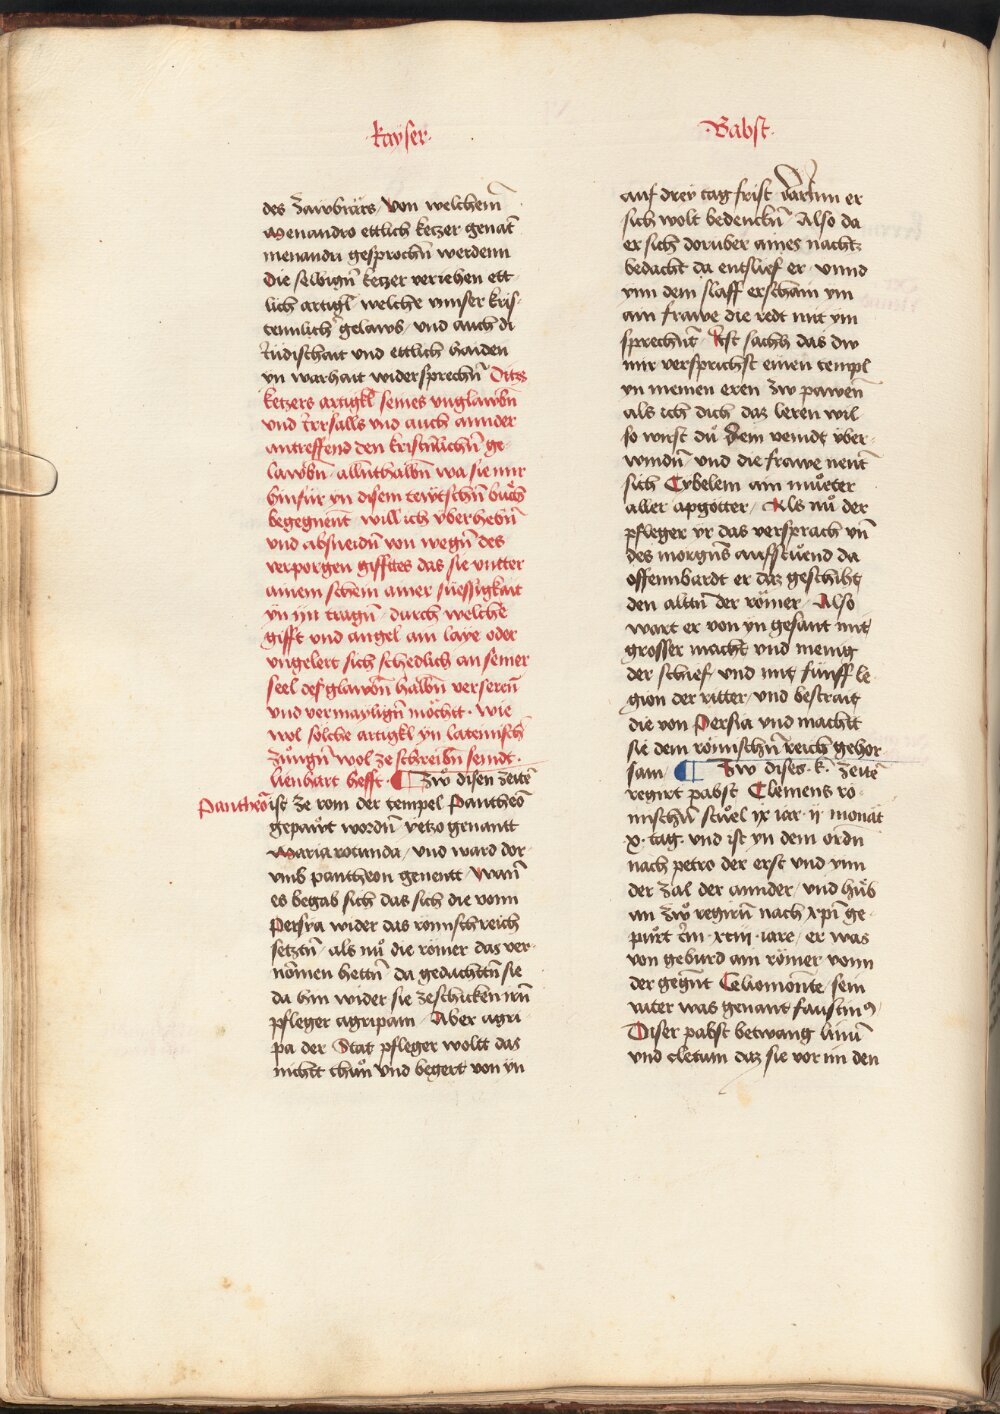 ·kayser·
des Zawbrärs / von welchem̄
Menandro ettlich ketzer genāt
menandri gesprochn̄ werdenn
Die selbign̄ ketzer veriehen ett
lich artigl / welche vnnser kris·
tennlich gelawb / vnd auch di
Jüdischait vnd ettlich haiden
yn warhait widersprechn̄ Ditz
ketzers artigkl seines vnglawbn̄
vnd Irrsalls vnd auch annder
antreffend den kristn̄lichn̄ ge
lawbn̄ allnthalbn̄ wa sie mir
hinfür yn disem tewtschn̄ bůch
begegnent will ich vberhebn̄
vnd absneidn̄ von wegn̄ des
verporgen gifftes das sie vntter
ainem schein ainer süessigkait
yn jn tragn̄ durch welche
gifft vnd angel ain laye oder
vngelert sich schedlich an seiner
seel des glawbn̄ halbn̄ verseren̄
vnd vermaylign̄ möchtt · wie
wol sölche artigkl yn lateinisch
zůngn̄ wol ze schreibn̄ seindt ·
lienhart hefft · ¶ Zwͦ disen zeitē
Pantheō
ist ze rom der tempel Pantheō
gepawt wordn̄ yetzo genantt
Maria rotunda / vnd ward dor
vmb pantheon genentt / wann̄
es begab sich das sich die vonn
Persia wider das römsch reich
setztn̄ als nů die römer das ver·
nömen hettn̄ da gedachttn̄ sie
da hin wider sie ze schicken irn̄
pfleger agripam / Aber agri
pa der Stat pfleger woltt das
nichtt thůn vnd begert von yn
·Babst·
auf drey tag frist darjnn er
sich wolt bedenckn̄ Also da
er sich doruber aines nachtz
bedacht da entslief er / vnnd
ynn dem slaff erschain ym
ain frawe die redt mit ym
sprechn̄t Ist sachh das dw
mir versprichst einen templ
yn meinen eren zw pawen̄
als ich dich daz leren wil
so wirst dů dein veindt vber
windn̄ vnd die frawe nent̄
sich Cybelem ain můeter
aller apgötter / Als nů der
pfleger yr das versprach vn̄
des morgn̄s aufstůend da
offennbardt er daz geschiht
den alttn̄ der römer / Also
wart er von yn gesant mit
grosser macht vnd menig
der schief / vnd mit fünff le
gion der ritter / vnd bestrait
die von Persia vnd machtt
sie dem römischn̄ reich gehor
sam / ¶ Zw dises · k · zeitē
regirt pabst Clemens rö
mischn̄ stůel ix iar · ij · monāt
x · tag · vnd ist yn dem ordn̄
nach petro der erst vnd ynn
der zal der annder / vnd hůb
an zwͦ regirn̄ nach xp̄i ge
půrt Im · xciij · iare / er was
von geburd ain römer vonn
der gegn̄t Celiomonte / sein
vater was genant faustin9
Diser pabst betwang linū
vnd cletum daz sie vor im den